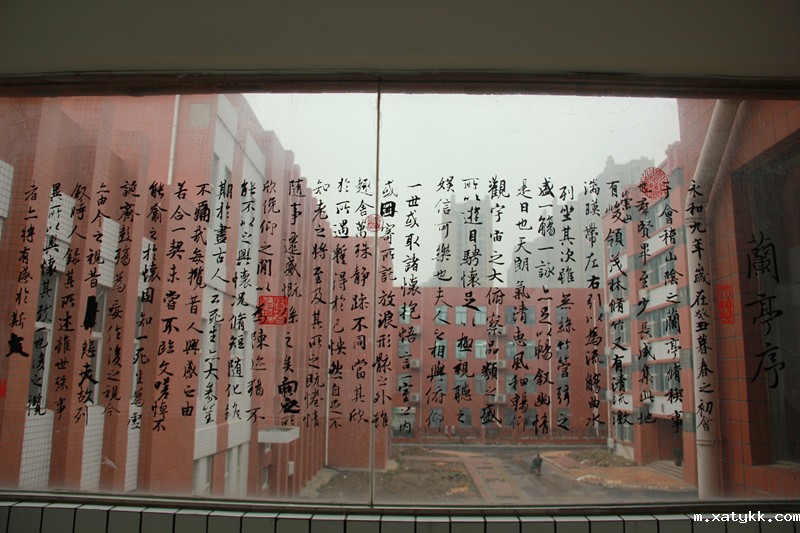 蘭亭序
永和九年歲在癸丑暮春之初會
于會稽山陰之蘭亭脩稧事
也羣賢畢至少長咸集此地
有崇山峻領茂林脩竹又有清流激
湍暎帶左右引以為流觴曲水
列坐其次雖無絲竹管弦之
盛一觴一詠亦足以暢敘幽情
是日也天朗氣清惠風和暢仰
觀宇宙之大俯察品類之盛
所以遊目騁懷足以極視聽之
娛信可樂也夫人之相與俯仰
一世或取諸懷抱悟言一室之內
或因寄所託放浪形骸之外雖
趣舍萬殊靜躁不同當其欣
於所遇暫得於己怏然自足不
知老之將至及其所之既惓情
隨事遷感慨係之矣向之所
欣俛仰之間以為陳迹猶不
能不以之興懷況脩短隨化終
期於盡古人云死生亦大矣豈
不痛哉每攬昔人興感之由
若合一契未嘗不臨文嗟悼不
能喻之於懷固知一死生為虛
誕齊彭殤為妄作後之視今
亦由今之視昔悲夫故列
敘時人錄其所述雖世殊事
異所以興懷其致一也後之攬
者亦將有感於斯文
m.xatykk.com